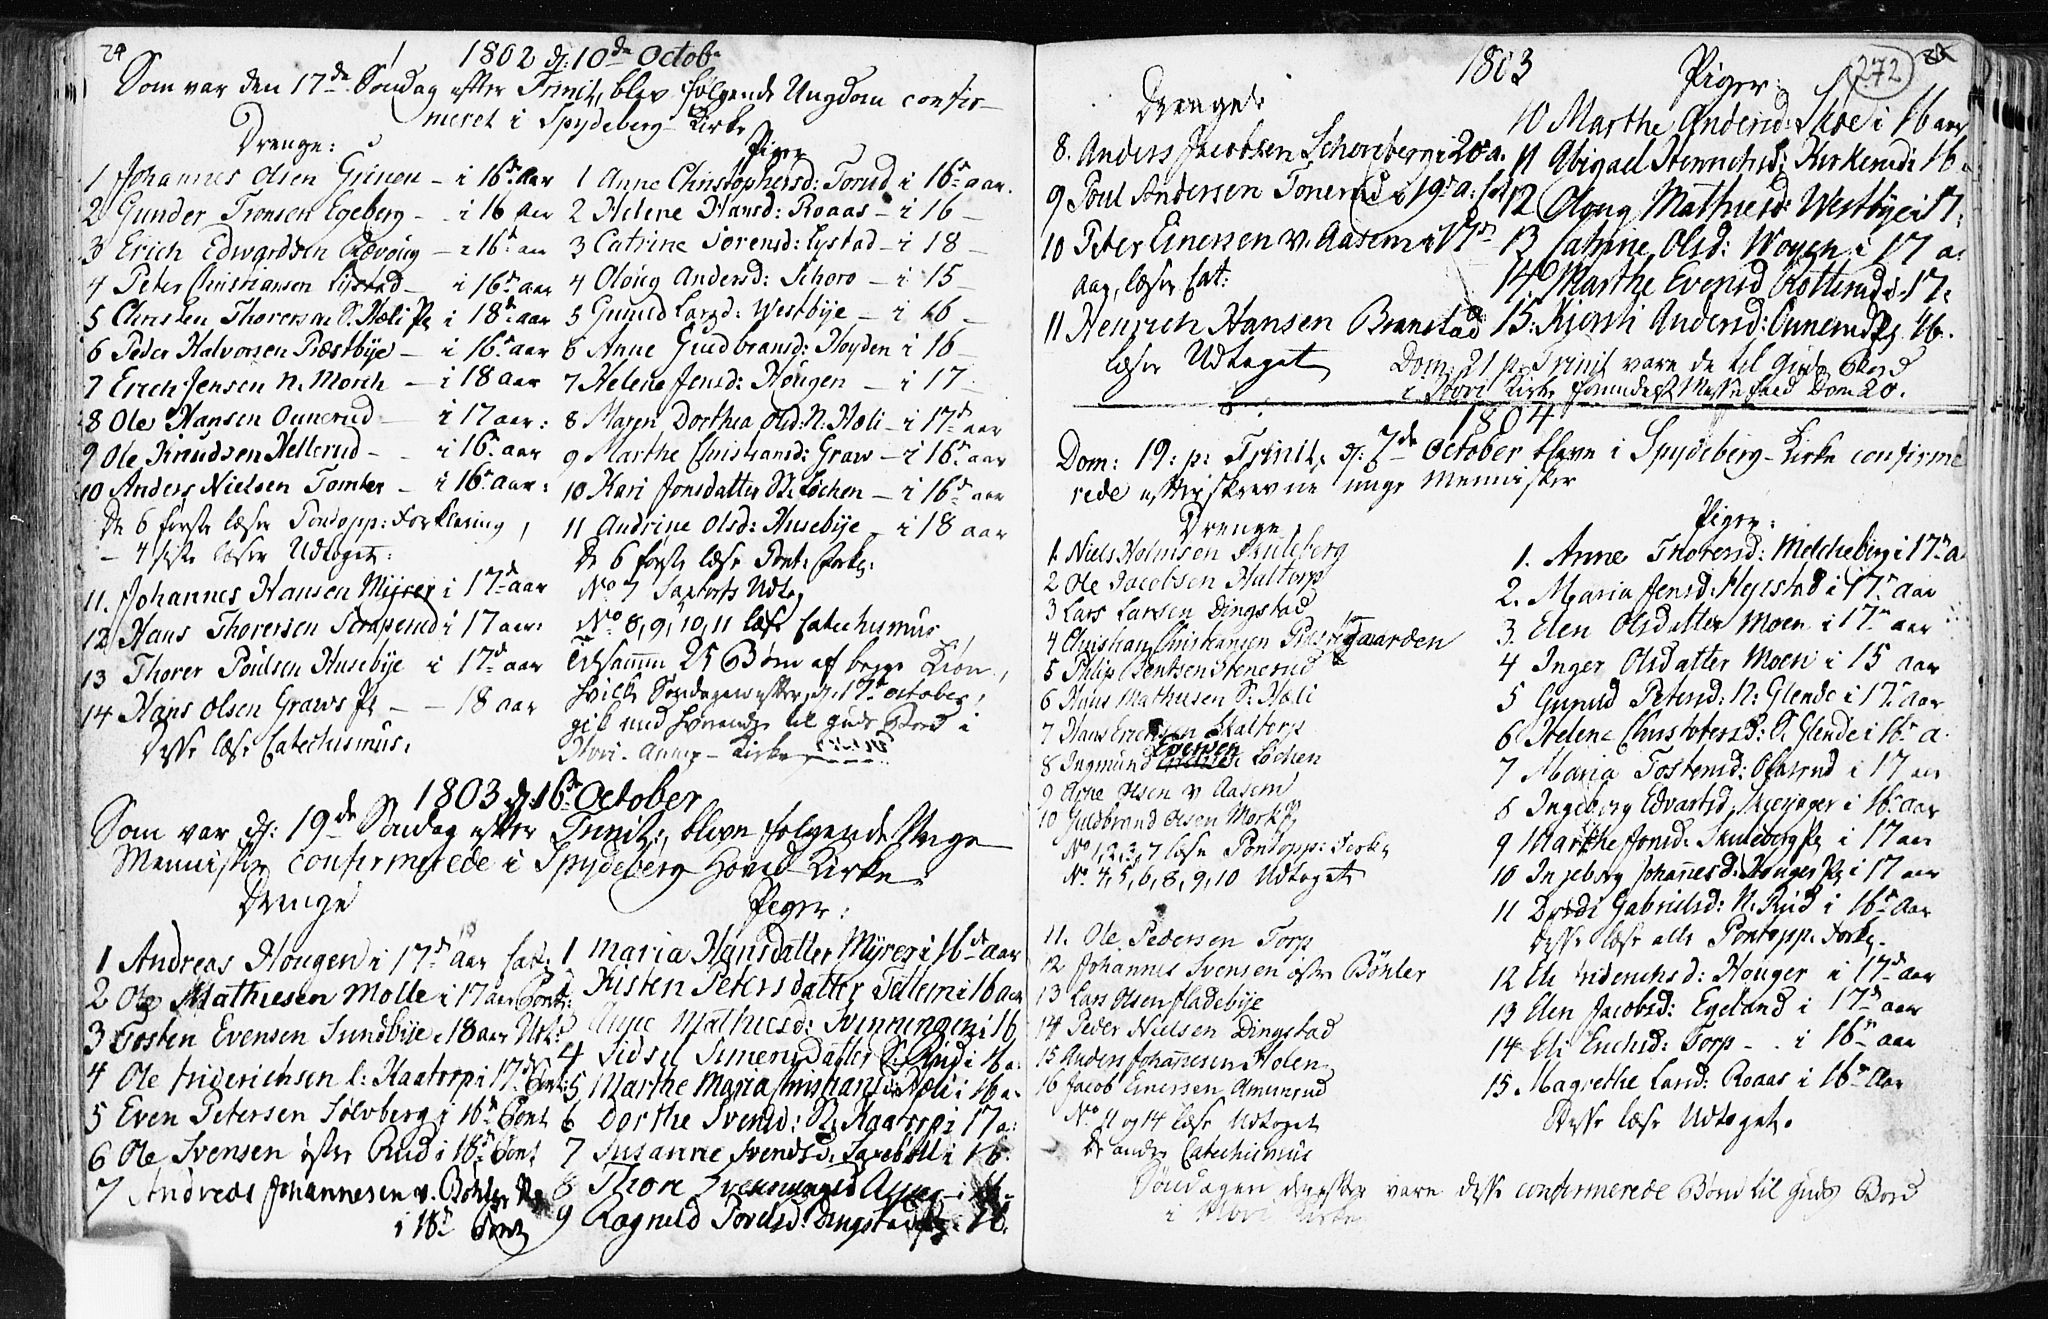 24
1802 d: 10de Octob
Som var den 17de Søndag efter Trinit, blev følgende Ungdom confir-
meret i Spydeberg Kirke
Drenge:
1 Johannes Olsen - i 16de Aar
2 Gunder Tronsen Egeberg - i 16 aar
3 Erich Edwardsen - i 16de aar
4 Peter Christiansen Lystad - i 16de aar
5 Christen Thoresen S: Hæli Pl i 18de aar
6 Peder Halvorsen Præstbye - i 16de aar
7 Erich Jensen N. Morch - i 18 aar
8 Ole Hansen Ounerud - i 17 aar:
9 Ole Knudsen Hellerud - i 16de aar
10 Anders Nielsen Tomter - i 16de aar:
De 6 første læser Pontopp: Forklaring,
- 4 siste læser Udtoget:
11. Johannes Hansen Myrer i 17de aar
12 Hans Thoresen Scraperud i 17 aar:
13 Thorer Poulsen Husebye i 17de aar
14 Hans Olsen Graws Pl - - 18 aar
Disse læse Catechismus.
Piger
1 Anne Christophersd: Torud i 16de aar.
2 Helene Hansd: Roaas - i 16 -
3 Catrine Sorensd: Lystad - i 18 -
4 Oloug Andersd: Schoro - i 15 -
5 Gunild Larsd: Westbye - i 16 -
6 Anne Gudbransd: Høyden i 16 -
7 Helene Jensd: Hougen - i 17
8 Maren Dorthea Olsd: N: Hæli - i 17de aar
9 Marthe Christiansd: Graw - i 16de aar
10 Kari Jonsdatter N: Løchen - i 16de aar
11 Andrine Olsd: Husebye - i 18 aar
De 6 første læse Pont: Forkl:
No 7 Saxtorfs Udtog
No 8, 9, 10, 11 læse Catechismus
Tilsamm 25 Børn af begge Kiøn,
hvilke Søndagen efter, d: 17de October,
gik med til Guds Bord i
Hovi Kirke
1803 d: 16de October
Som var d: 19de Søndag efter Trinit:, bleve følgende Unge
Mennisker confirmerede i Spydeberg Hoved Kirke.
Drenge
1 Andreas Hougen i 17de aar Cat:
2 Ole Mathiesen Molle i 17 aar Pont:
3 Tosten Evensen Sundbye i 18 aar Udt:
4 Ole Friderichsen l: Kaatorp i 17de Pont:
5 Even Petersen Sølvberg i 16de Pont
6 Ole Svensen øster Rud i 18de Pont
7 Andreas Johannesen v. Bøhler Pl
i 18de Pont
Piger:
1 Maria Hansdatter Myrer i 16de aar
2 Kisten Petersdatter Tellem i 16 aar
3 Anne Mathiesd: Svenningen i 16
4 Sidsel Simensdatter S: Rud i 16 a:
5 Marthe Maria Christiansd: Hæli i 16 a:
6 Dorthe Svensd: N: Kaatorp i 17 a:
7 Susanne Svendsd: i 16.
8 Thore
9 Ragnild Povelsd: Dingstad Pl. 16.
1803
272
Drenge
8. Anders Jacobsen Schoroberg i 20de a.
9 Poul Andersen Tonerud i 19de a: Cat:
10 Peter Einersen v. Aasem i 17de
aar, læser Cat:
11 Henrich Hansen Branstad
læser Udtoget
Piger:
10 Marthe Andersd: Skoe i 16 aar
11 Abigael Hennichsd: Kirkerud i 16 a
12 Oloug Mathiesd: Westbye i 17.
13 Catrine Olsd: Woyen i 17 a:
14 Marthe Evensd Rotterud i 17:
15. Kjersti Andersd: Ounerud Pl. 16.
Dom: 21 p: Trinit vare de til Guds Bord
i Hovi Kirke Dom 20.
1804
Dom: 19: p: Trinit: d: 7de October bleve i Spydeberg Kirke confirme
rede efterskrevne unge Mennisker
Drenge
1. Niels Holmsen Skuleberg
2 Ole Jacobsen Hultorp
3 Lars Larsen Dingstad
4 Christian Christiansen Præstegaarden
5 Philip Bentsen Stenerud
6 Hans Mathiesen S: Hæli
7 Hans Erichsen Skaltorp
8 Ingmund Evensen Løchen
9 Arne Olsen v Aasem
10 Guldbrand Olsen Mork Pl
No 1, 2, 3, 7 læse Pontopp: Forkl
No. 4, 5, 6, 8, 9, 10 Udtoget
11. Ole Pedersen Torp
12 Johannes Svensen østre Bøhler
13 Lars Olsen Fladebye
14 Peder Nielsen Dingstad
15 Anders Johannesen Holen
16 Jacob Einersen Amunrud
No 11 og 14 læse Udtoget
De andre Catechismus
Piger:
1. Anne Thoresd: Melcheberg i 17de a
2. Maria Jensd: Hejestad i 17de aar
3. Elen Olsdatter Moen i 17de aar
4 Inger Olsdatter Moen i 15 aar
5 Gunild Petersd: N: Glende i 17de aar
6 Helene Christophersd: S Glende i 16de a.
7 Maria Tostensd: i 17 aar
8 Ingeborg Edvartsd: i 16de aar
9 Marthe Jonsd: Skuleberg Pl i 17 aar
10 Ingeborg Johannesd: Honger Pl i 17 aar
11 Dordi Gabrielsd: N: Rud i 16de aar
Disse læse alle Pontopp. Forkl.
12 Eli Friderichsd: Houger i 17de aar
13 Elen Jacobsd: Egeland i 17de aar
14 Eli Erichsd: Torp - . i 16de aar
15 Magrethe Larsd: Roaas i 16de Aar
Disse læse Udtoget.
Søndagen derefter vare disse confirmerede Børn til Guds Bord
i Hovi Kirke